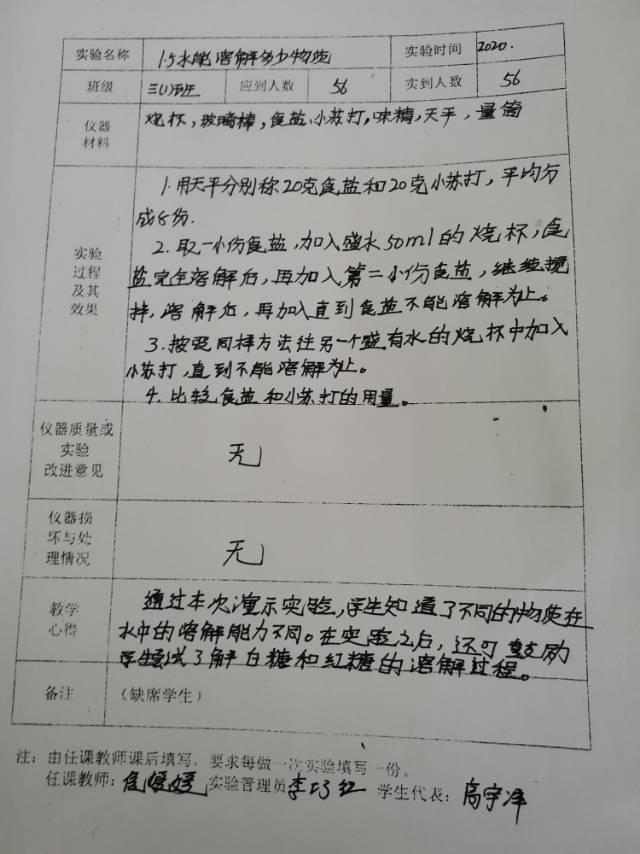 实验名称 1.5水能溶解多少物质 实验时间 2020.
班级 三(1)班 应到人数 56 实到人数 56
仪器材料 烧杯,玻璃棒,食盐、小苏打,味精,天平,量筒
实验过程及其效果
1.用天平分别称20克食盐和20克小苏打,平均分
成8份.
2.取一小份食盐,加入盛水50ml的烧杯,食
盐完全溶解后,再加入第二小份食盐,继续搅
拌,溶解后,再加入直到食盐不能溶解为止。
3.按照同样方法往另一个盛有水的烧杯中加入
小苏打,直到不能溶解为止。
4.比较食盐和小苏打的用量。
仪器质量或
实验
改进意见
无
仪器损
坏与处
理情况
无
教学
心得
通过本次演示实验,学生知道了不同的物质在
水中的溶解能力不同。在实验之后,还可鼓励
学生尝试了解白糖和红糖的溶解过程。
备注 (缺席学生)
注:由任课教师课后填写,要求每做一次实验填写一份。
任课教师: 实验管理员 李巧红 学生代表:高宇泽